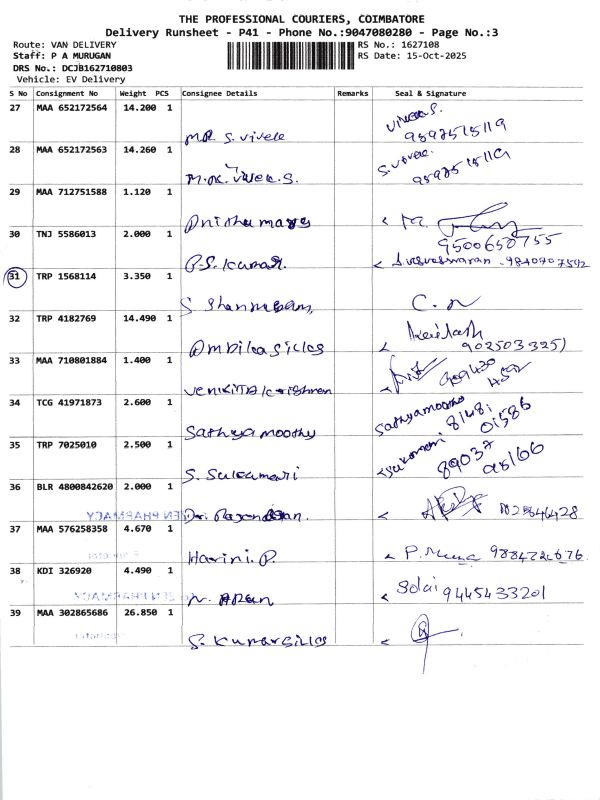 THE PROFESSIONAL COURIERS, COIMBATORE
Delivery Runsheet - P41 - Phone No.:9047080280 - Page No.:3
Route: VAN DELIVERY
RS No.: 1627108
Staff: P A MURUGAN
RS Date: 15-Oct-2025
DRS No.: DCJB162710803
Vehicle: EV Delivery
S No Consignment No Weight PCS Consignee Details Remarks Seal & Signature
27 MAA 652172564 14.200 1
MR S. Vivek
Vivek.S.
9597515119
28 MAA 652172563 14.260 1
M.R. Vivek.S.
S.Vivek.
9597515119
29 MAA 712751588 1.120 1
30 TNJ 5586013 2.000 1
9500650755
P.S. Kumar.
31 TRP 1568114 3.350 1
S Shanmugam,
32 TRP 4182769 14.490 1
Ambika silks
33 MAA 710801884 1.400 1
Venkita krishnan
34 TCG 41971873 2.600 1
Sathyamoothy
Sathyamootho
8148i
01586
35 TRP 7025010 2.500 1
S. Sukumari
89037
36 BLR 4800842620 2.000 1
PHARMACY
37 MAA 576258358 4.670 1
Harini. P.
38 KDI 326920 4.490 1
EN PHARMACY
Solai 9445433201
39 MAA 302865686 26.850 1
S. Kumarsilks